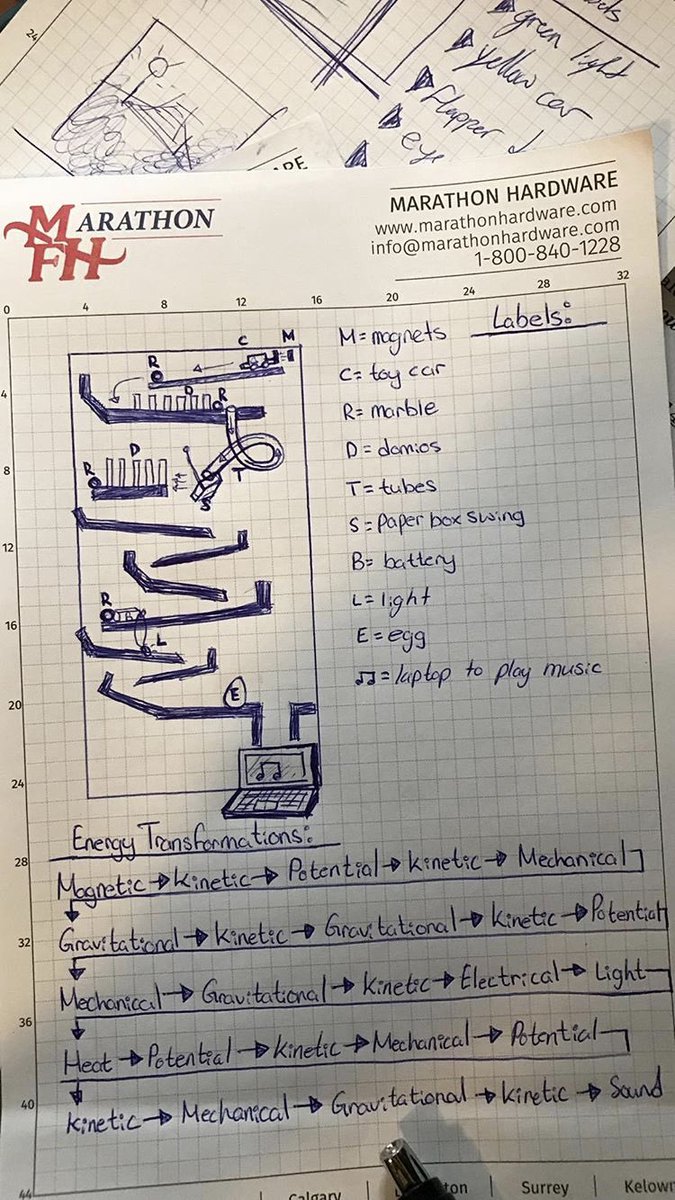 24
labels
green light
yellow car
flapper ↓
eye
MARATHON
FH
MARATHON HARDWARE
www.marathonhardware.com
info@marathonhardware.com
1-800-840-1228
0 4 8 12 16 20 24 28 32
4
8
12
16
20
24
28
32
36
40
44
C M
R
D R
D
R
T
S
R
L
E
♫
Labels:
M= magnets
C= toy car
R= marble
D= domios
T= tubes
S= paper box swing
B= battery
L= light
E= egg
♫= laptop to play music
Energy Transformations:
Magnetic → Kinetic → Potential → kinetic → Mechanical
Gravitational → kinetic → Gravitational → kinetic → Potential
Mechanical → Gravitational → kinetic → Electrical → Light
Heat → Potential → kinetic → Mechanical → Potential
kinetic → Mechanical → Gravitational → kinetic → Sound
Calgary
Surrey